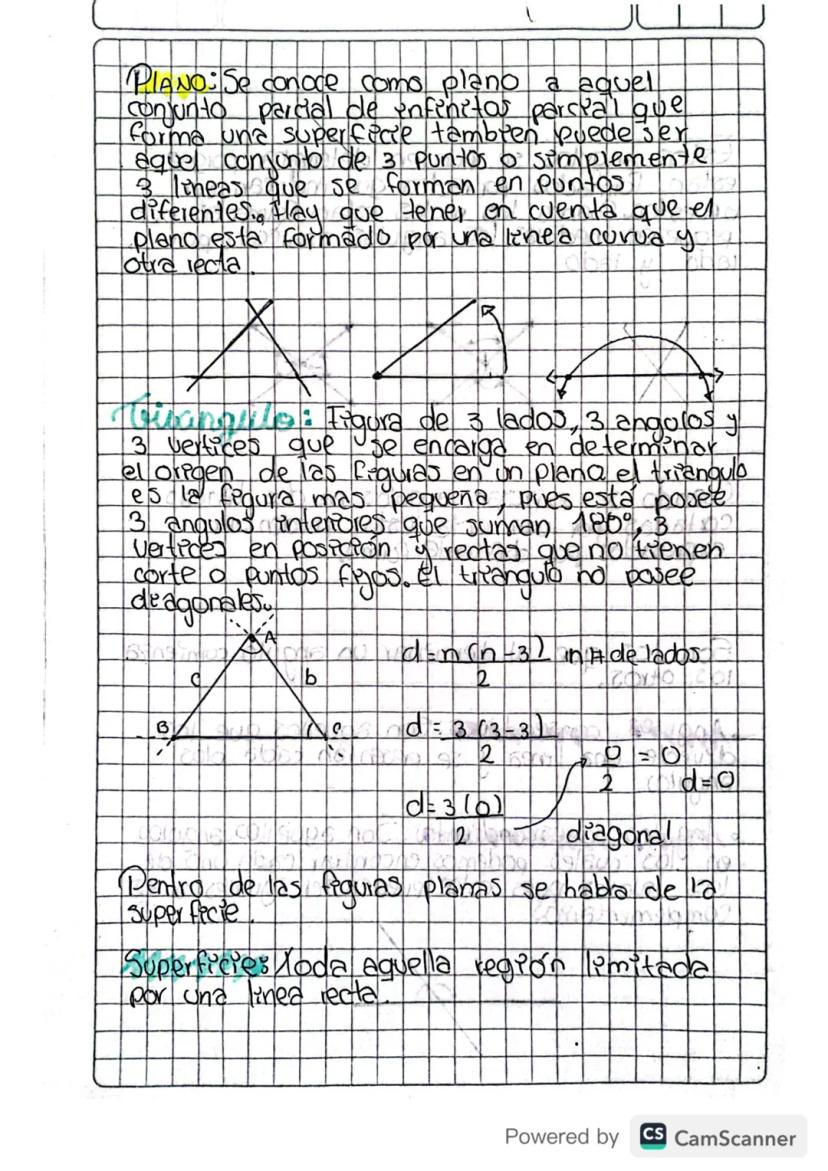 PLANO: Se conoce como plano a aquel
conjunto parcial de infinitos parcial que
forma una superficie tambien puede ser
aquel conjunto de 3 puntos o simplemente
3 lineas que se forman en puntos
diferentes. Hay que tener en cuenta que el
plano esta formado por una linea curva y
otra recta.
Triangulo: Figura de 3 lados, 3 angolos y
3 vertices que se encarga en determinar
el origen de las figuras en un plano el triangulo
es la figura mas pequeña, pues esta posee
3 angulos interiores que suman 180°, 3
vertices en posición y rectas que no tienen
corte o puntos fijos. El triangulo no posee
diagonales.
A
c b
B C
d = n(n-3)/2 n # de lados
d = 3(3-3)/2
0/2 = 0
d=0
d= 3(0)/2
diagonal
Dentro de las figuras planas se habla de la
superficie.
Superficies Toda aquella región limitada
por una linea recta.
Powered by CS CamScanner